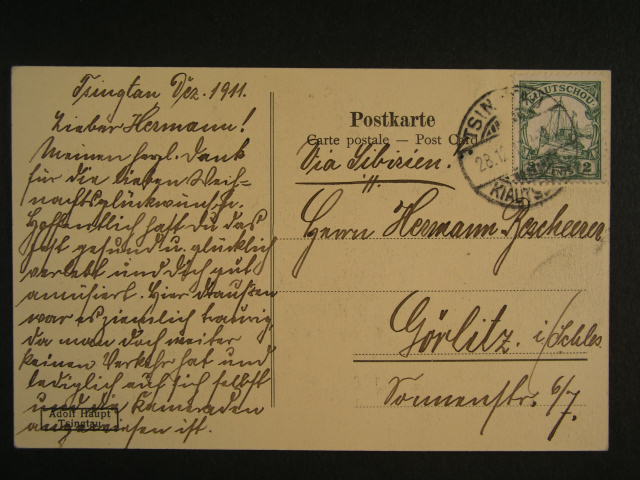 Tsingtau Dez. 1911.
Lieber Hermann!
Meinen herzl. Dank
für die lieben Weih-
nachtsglückwünsche.
Hoffentlich hast Du das
Fest gesund u. glücklich
verlebt und Dich gut
amüsiert. Hier draußen
war es ziemlich traurig,
da man doch weiter
keinen Verkehr hat und
lediglich auf sich selbst
und die Kameraden
angewiesen ist.
Adolf Haupt
Tsingtau
Postkarte
Carte postale — Post Card
Via Sibirien.
Herrn Hermann
Görlitz. i/Schles
Sonnenstr. 6/7.
KIAUTSCHOU
2
TSINGTAU
28.12
KIAUTSCH